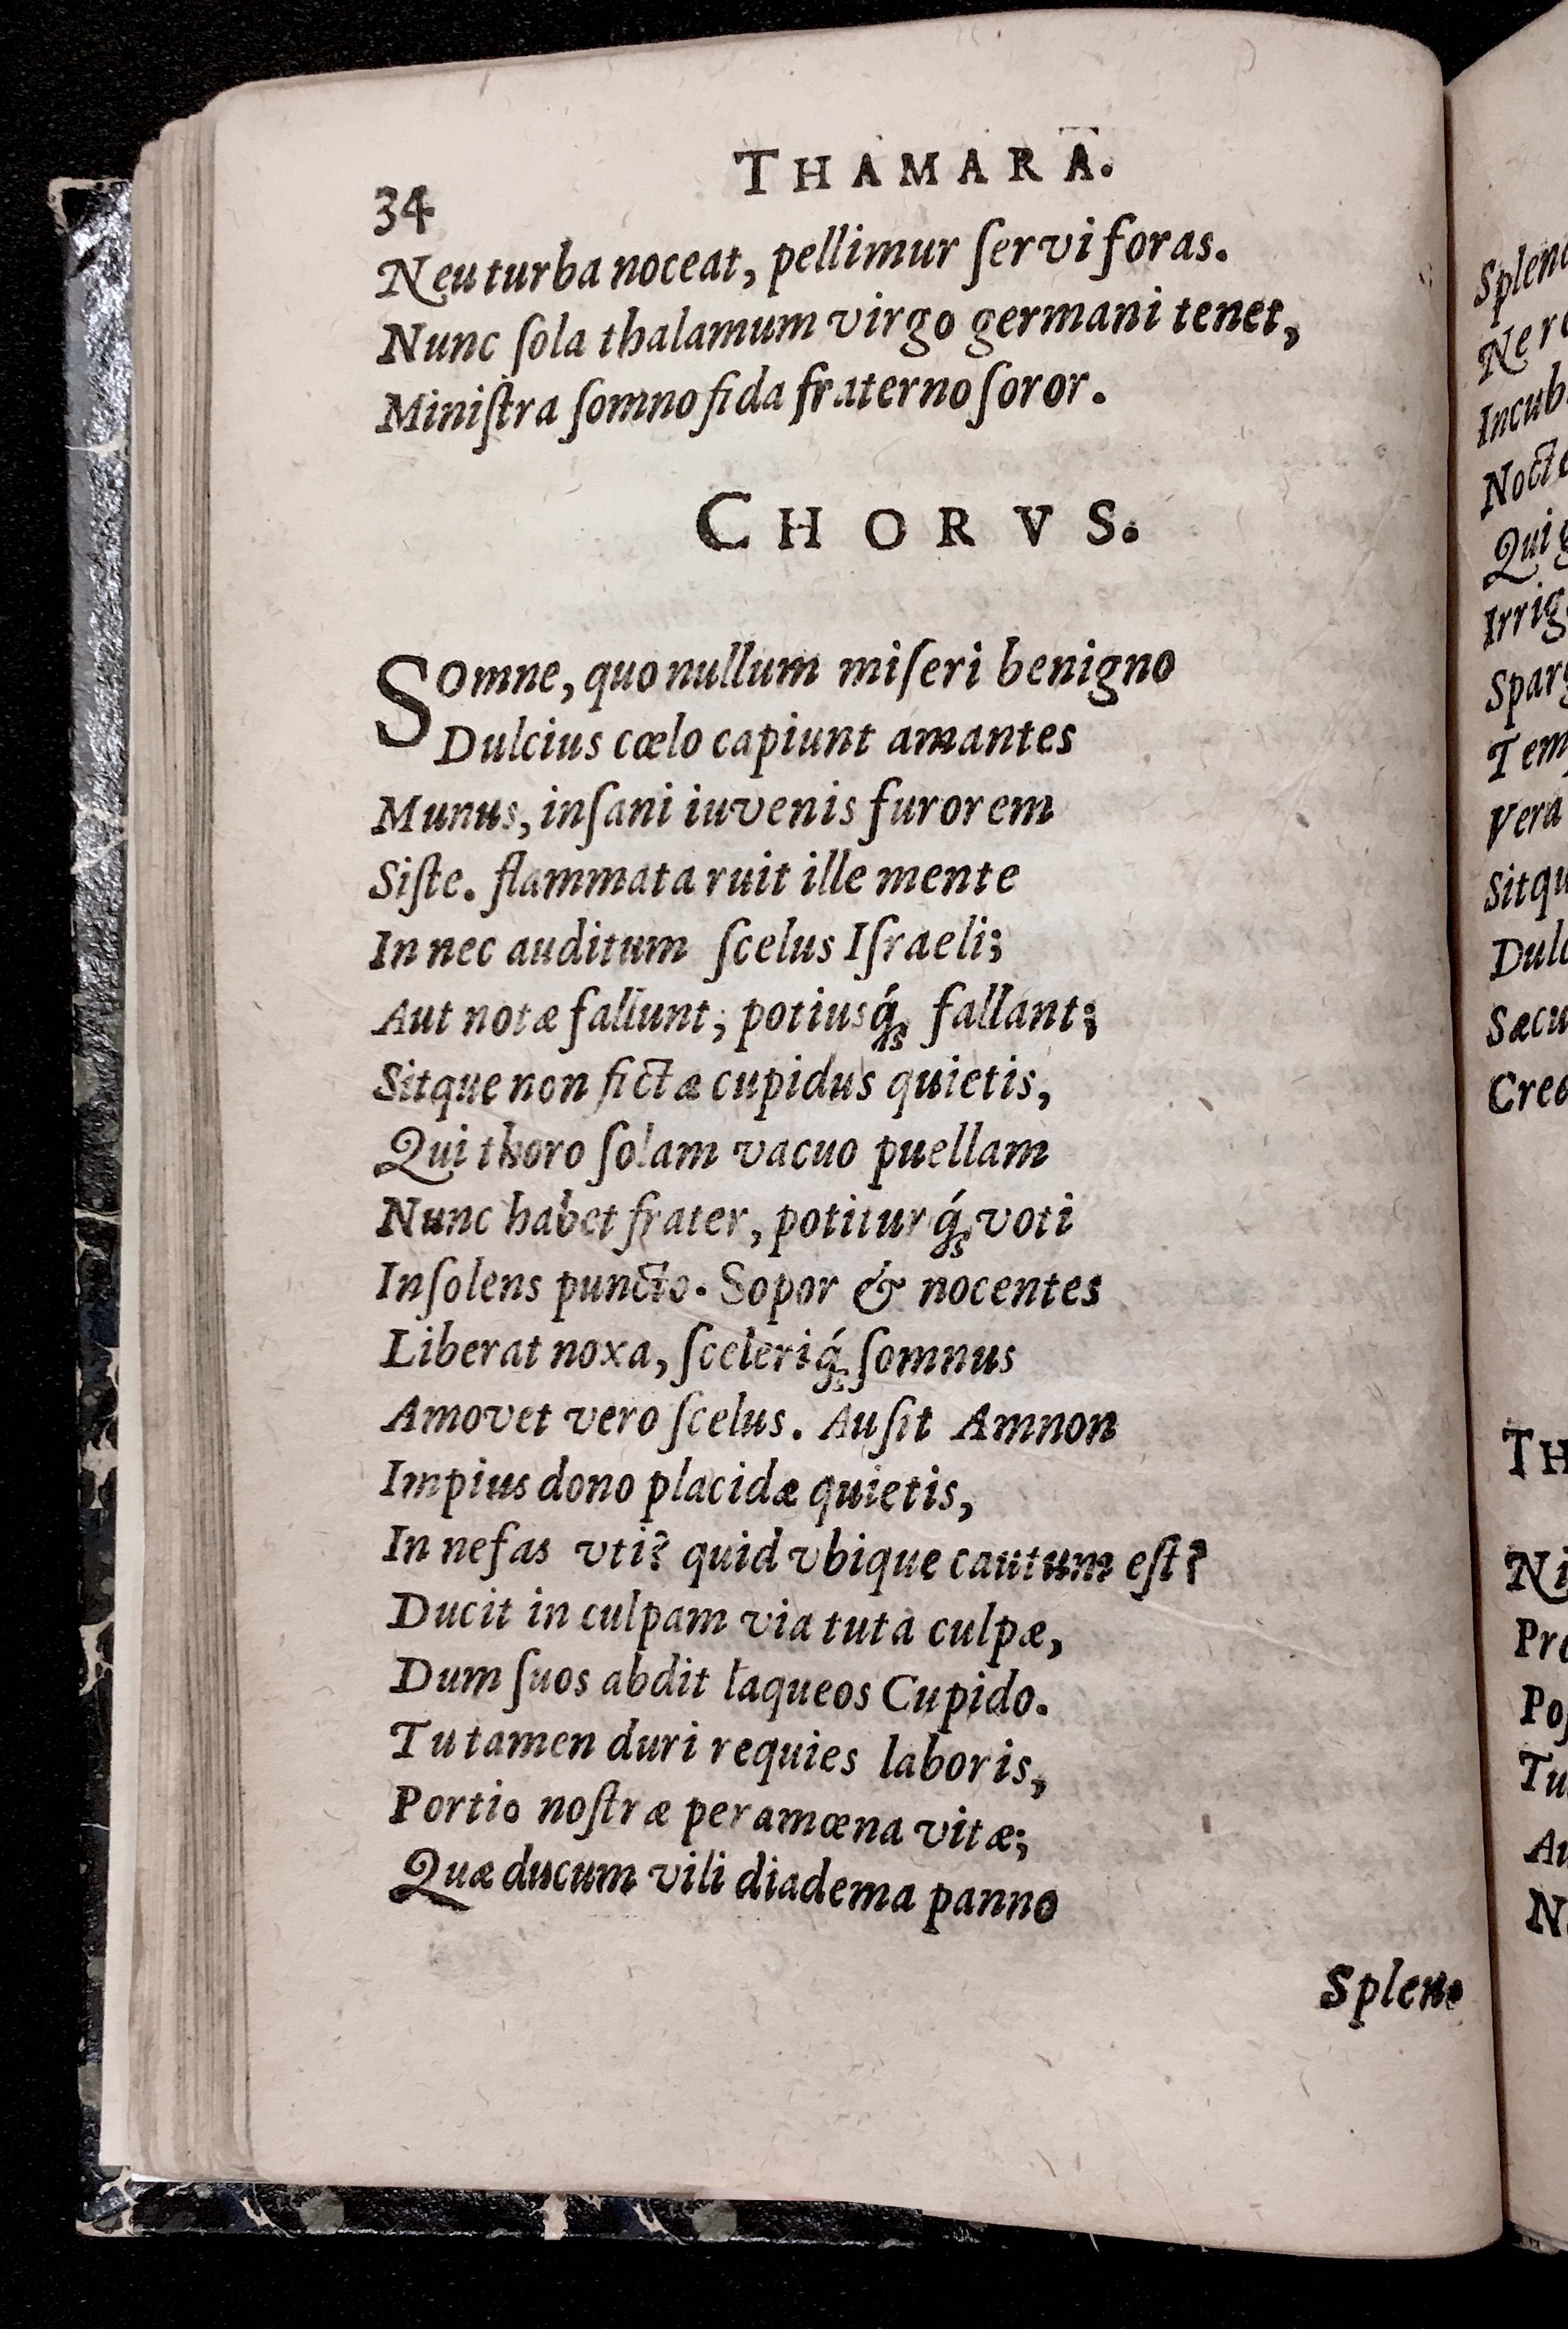 THAMARA.
34
Neu turba noceat, pellimur ſervi foras.
Nunc ſola thalamum virgo germani tenet,
Miniſtra ſomno fida fraterno ſoror.
CHORVS.
SOmne, quo nullum miſeri benigno
Dulcius cœlo capiunt amantes
Munus, inſani iuvenis furorem
Siſte. flammata ruit ille mente
In nec auditum ſcelus Iſraeli;
Aut notæ fallunt; potiusq́; fallant;
Sitque non fictæ cupidus quietis,
Qui thoro ſolam vacuo puellam
Nunc habet frater, potiturq́; voti
Inſolens puncto. Sopor & nocentes
Liberat noxa, ſceleriq́; ſomnus
Amovet vero ſcelus. Auſit Amnon
Impius dono placidæ quietis,
In nefas vti? quid vbique cautum eſt?
Ducit in culpam via tuta culpæ,
Dum ſuos abdit laqueos Cupido.
Tu tamen duri requies laboris,
Portio noſtræ peramœna vitæ;
Quæ ducum vili diadema panno
Splen
Ner
Incub
Nocte
Qui g
Irrig
Sparg
Tem
Vera
Sitqu
Dulc
Sæcu
Cred
TH
Ni
Pr
Po
Tu
Au
N